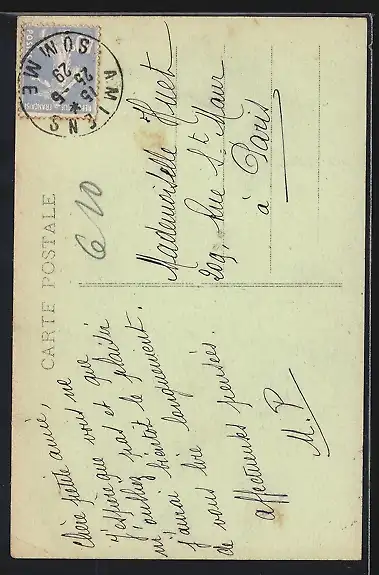 CARTE POSTALE
AMIENS
SOMME
15 *
23 - 6
29
POSTES
RÉPUBLIQUE FRANÇAISE
610
Chère petite amie,
J'espère que vous ne
m'oubliez pas et que
j'aurai bientôt le plaisir
de vous lire longuement.
affectueuses pensées.
M. P
Mademoiselle Huet
209, Rue St Maur
à Paris